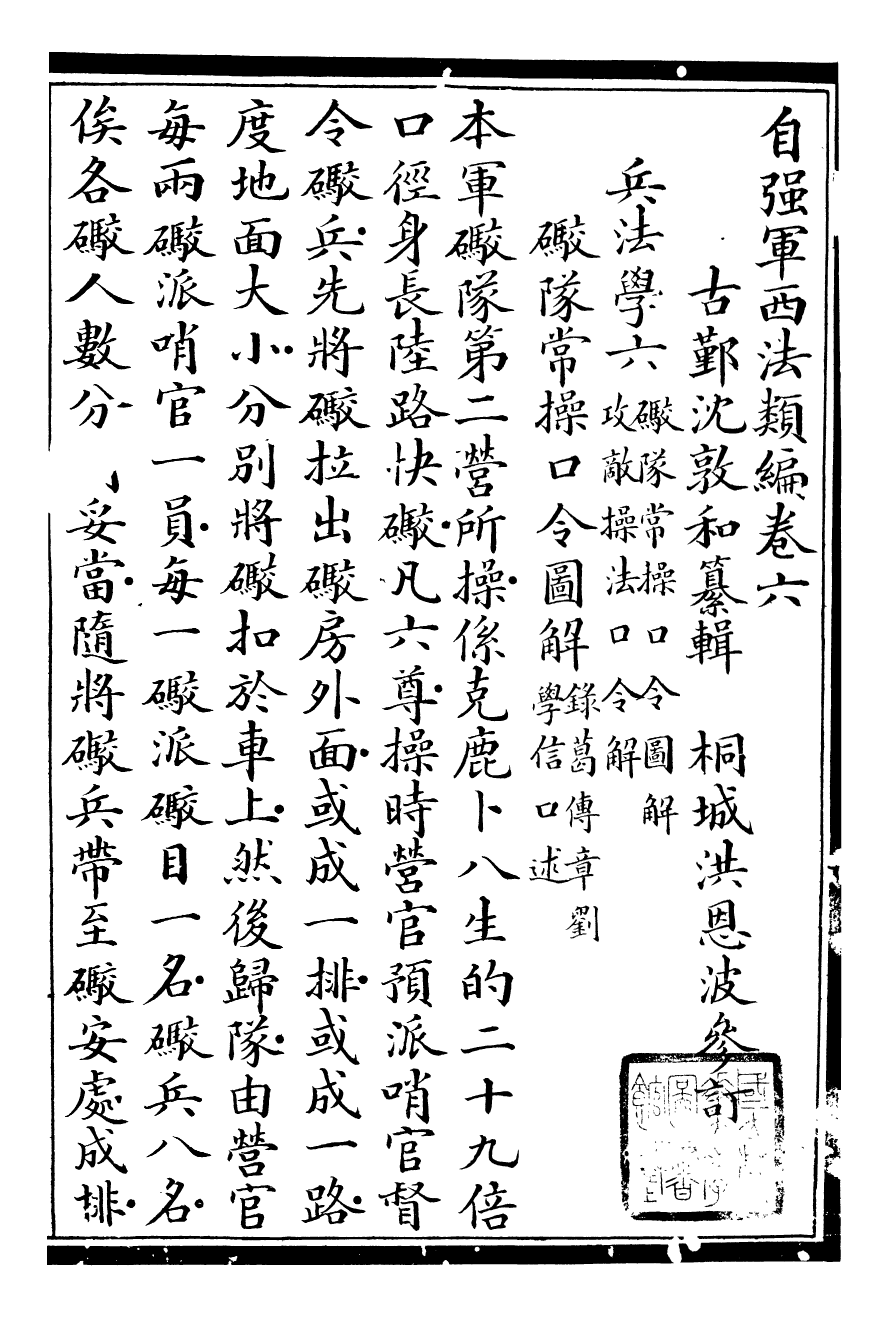 自强軍西法類編卷六
古鄞沈敦和纂輯　桐城洪恩波參訂
兵法學六 礮隊常操口令圖解 攻敵操法口令解
礮隊常操口令圖解 錄葛傳章劉 學信口述
本軍礮隊第二營所操係克鹿卜八生的二十九倍
口徑身長陸路快礮凡六尊操時營官預派哨官督
令礮兵先將礮拉出礮房外面或成一排或成一路
度地面大小分別將礮扣於車上然後歸隊由營官
每兩礮派哨官一員每一礮派礮目一名礮兵八名
俟各礮人數分　妥當隨將礮兵帶至礮安處成排